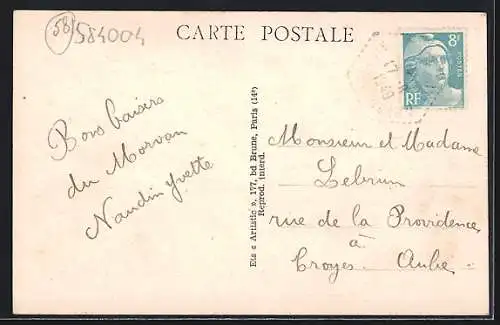 58
584004
CARTE POSTALE
8F
POSTES
RF
Bons baisers
du Morvan
Naudin Yvette
Ets « Artistic », 177, bd Brune, Paris (14e)
Reprod. interd.
Monsieur et Madame
Lebrun
rue de la Providence
à
Troyes. Aube